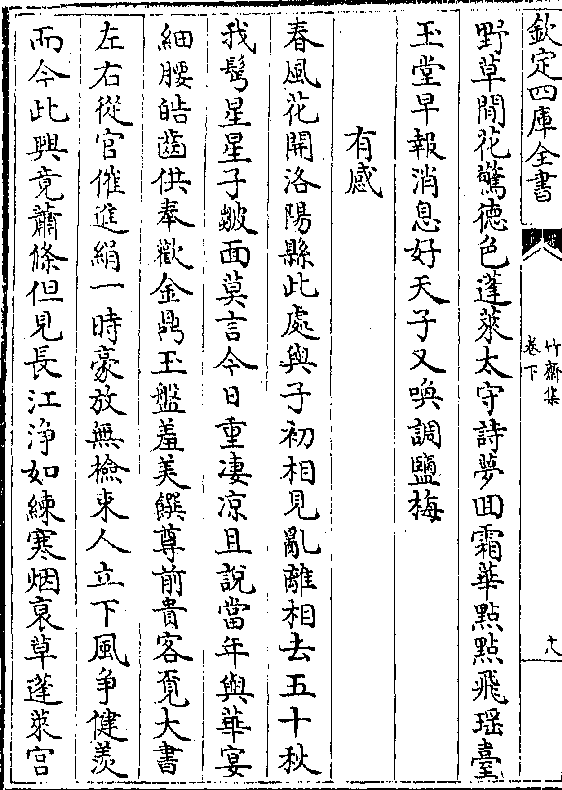 欽定四庫全書
竹齋集
卷下
十八
野草閒花驚徳色蓬萊太守詩夢回霜華點點飛瑶臺
玉堂早報消息好天子又喚調鹽梅
有感
春風花開洛陽縣此處與子初相見亂離相去五十秋
我髩星星子皺面莫言今日重凄凉且說當年與華宴
細腰皓齒供奉歡金鼎玉盤羞美饌尊前貴客覔大書
左右從官催進絹一時豪放無檢束人立下風争健羨
而今此興竟蕭條但見長江浄如練寒烟衰草蓬萊宫